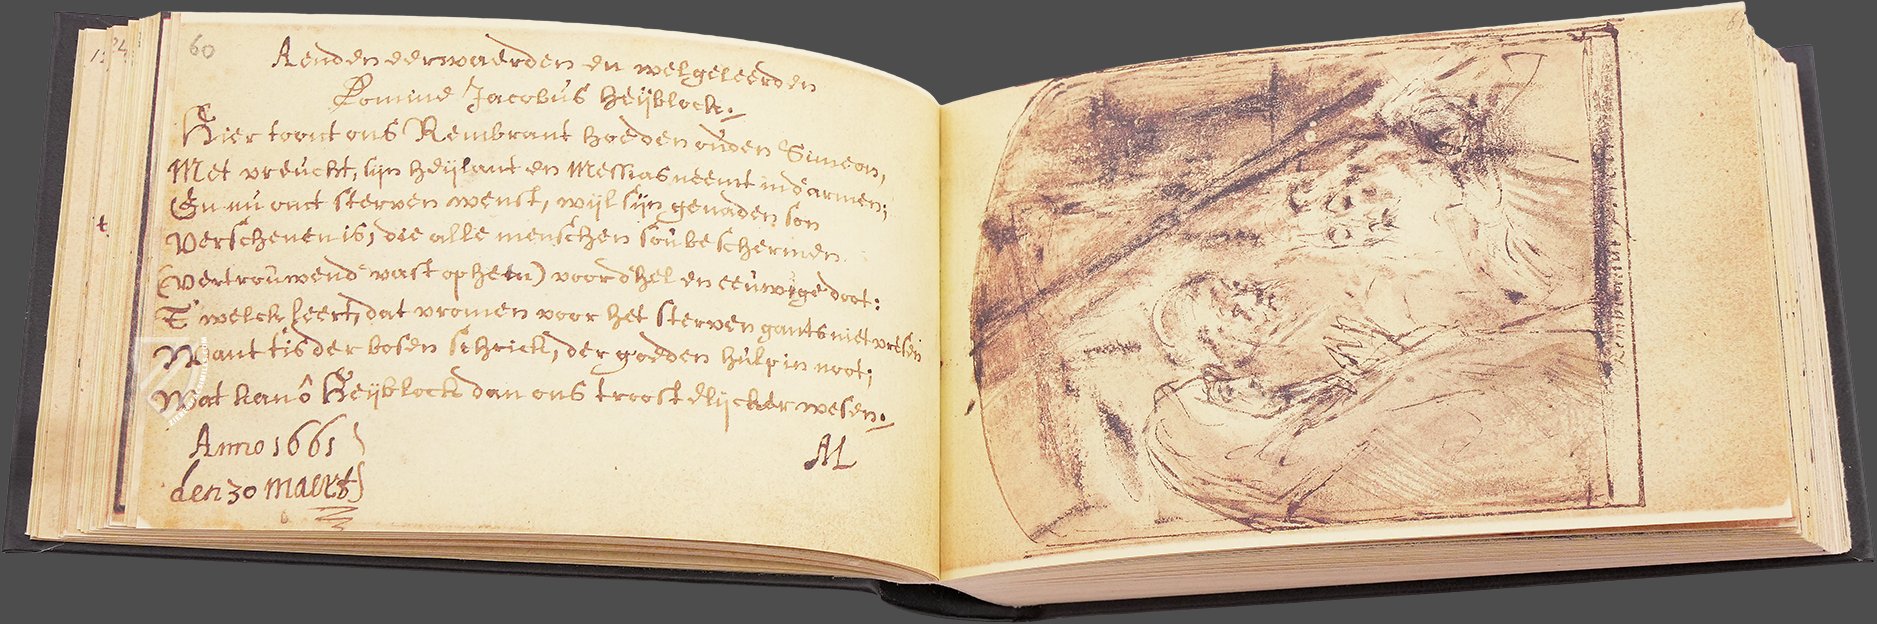 60
Aenden eerwaerden en welgeleerden
Domine Jacobus Heÿblock.
Hier toont ons Rembrant hoe den ouden Simeon,
Met vreucht, sijn Heÿlant en Messias neemt in d'armen;
En nu ont sterven wenst, wijl sijn genaden son
Verschenen is, die alle menschen sou bescherмen.
(vertrouwend vast op hem) voor d'hel en eeuwige doot:
T' welck leert, dat vromen voor het sterven gants niet vresen
Want tis der bosen schrick, der goeden hulp in noot;
Wat kan ô Heÿblock dan ons troostelijcker wesen.
Anno 1661
den 30 maert
AL
Rembrandt